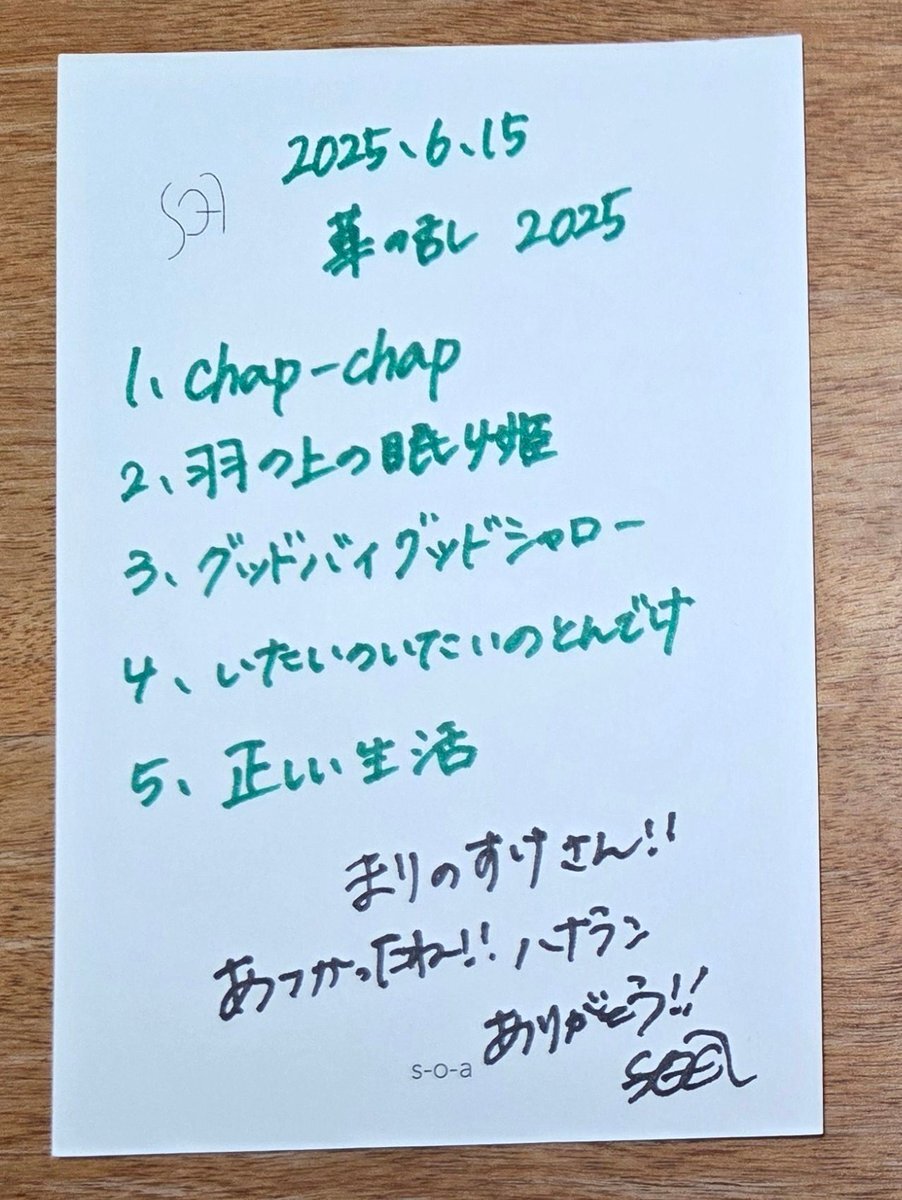 2025、6、15
SOA
華の乱 2025
1、chap-chap
2、羽の上の眠り姫
3、グッドバイグッドシャロー
4、いたいのいたいのとんでけ
5、正しい生活
まりのすけさん!!
あつかったね!! ハナラン
ありがとう!!
s-o-a